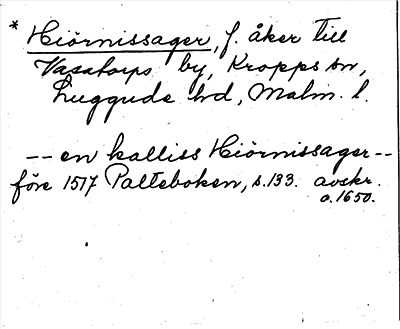 * Hiörnissager, f. åker till
Vasatorps by, Kropps sn,
Luggude hd, Malm. l.
-- en kalliss Hiörnissager --
före 1517 Palteboken, s.133. avskr.
o.1650.